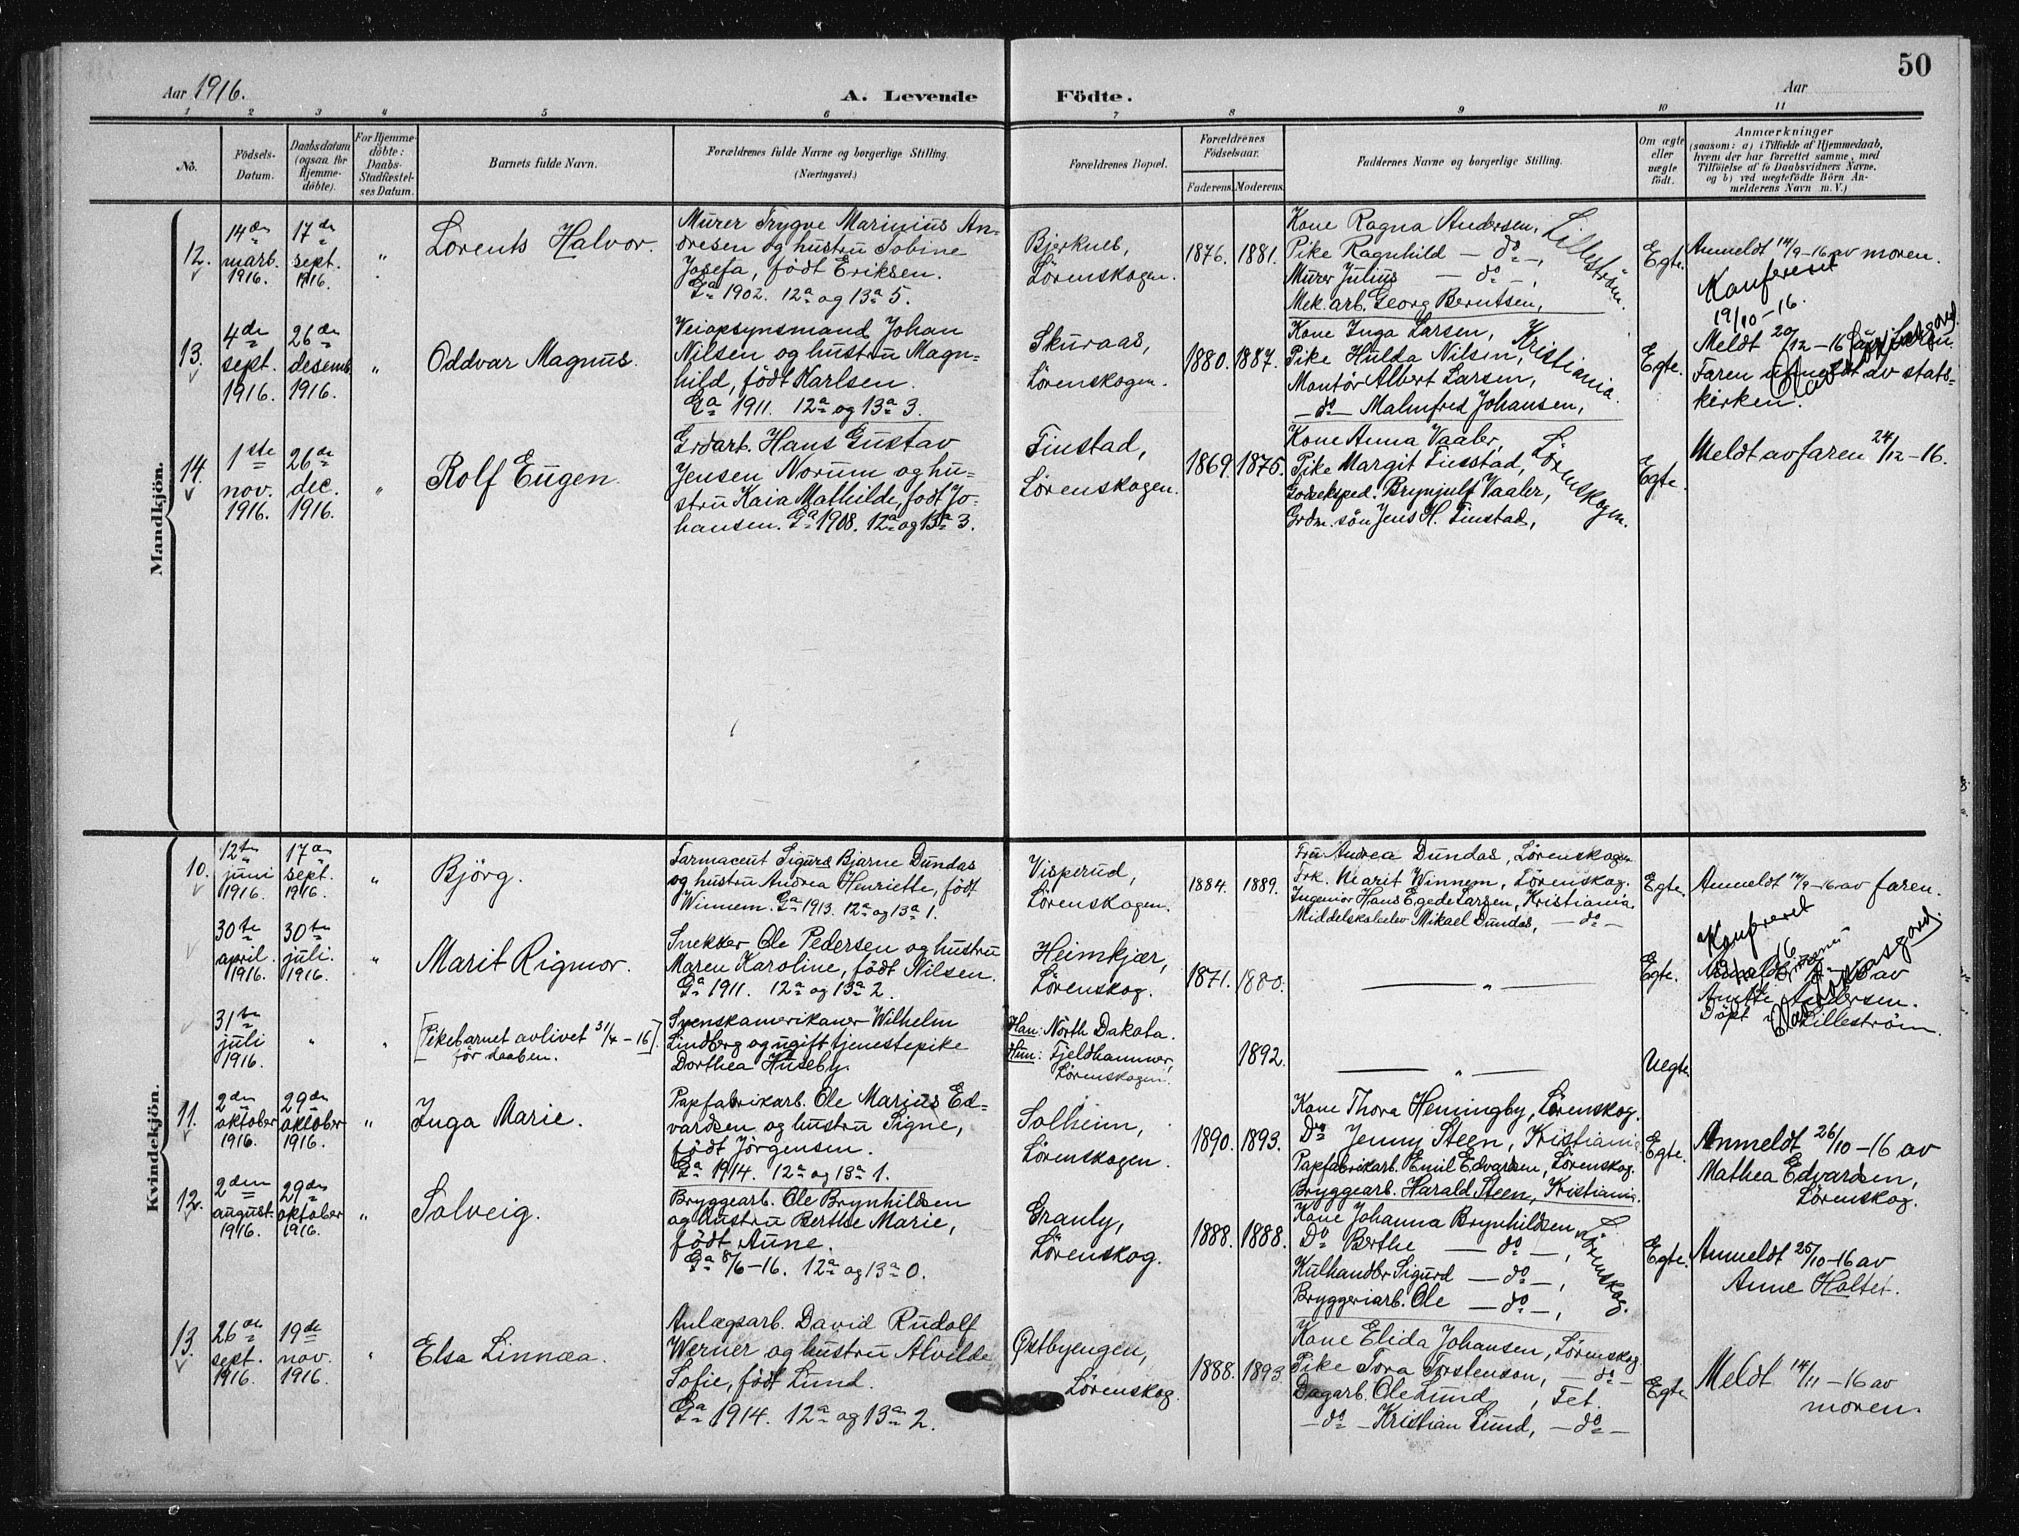 50
Aar 1916.
A. Levende Födte.
Aar
1 2 3 4 5 6 7 8 9 10 11
No.
Födsels-
Datum.
Daabsdatum
(ogsaa for
Hjemme-
döbte).
For Hjemme-
döbte:
Daabs-
Stadfæstel-
ses Datum.
Barnets fulde Navn.
Forældrenes fulde Navne og borgerlige Stilling.
(Næringsvei.)
Forældrenes Bopæl.
Forældrenes
Födselsaar.
Faderens. Moderens.
Faddernes Navne og borgerlige Stilling.
Om ægte
eller
uægte
födt.
Anmærkninger
(saasom: a) i Tilfælde af Hjemmedaab,
hvem der har forrettet samme, med
Tilföielse af to Daabsvidners Navne.
og b) ved uægtefödte Börn An-
melderens Navn m. V.)
Mandkjön.
12.
14de
marts.
1916.
17de
sept.
1916.
"
Lorents Halvor.
Murer Trygve Marinius An-
dresen og hustru Sobine
Josefa, født Eriksen.
Ga 1902. 12a og 13a 5.
Bjerknes,
Lørenskogen.
1876. 1881.
Kone Ragna Andersen,
Pike Ragnhild — do —,
Murer Julius — do —,
Mek. arb. Georg Berntsen,
Lillestrøm.
Egte.
Anmeldt 14/9-16 av moren.
Konfereret
19/10-16.
13.
4de
sept.
1916.
26de
desemb.
1916.
"
Oddvar Magnus.
Veiopsynsmand Johan
Nilsen og hustru Magn-
hild, født Karlsen.
Ga 1911. 12a og 13a 3.
Skuraas,
Lørenskogen.
1880. 1887.
Kone Inga Larsen,
Pike Hulda Nilsen,
Montør Albert Larsen,
— do — Malmfred Johansen,
Kristiania.
Egte.
Meldt 20/12-16
Faren utmeldt av stats-
kirken.
14.
1ste
nov.
1916.
26de
dec.
1916.
"
Rolf Eugen.
Grdarb. Hans Gustav
Jensen Norum og hu-
stru Kaia Mathilde, født Jo-
hansen. Ga 1908. 12a og 13a 3.
Finstad,
Lørenskogen.
1869. 1875.
Kone Anna Vaaler,
Pike Margit Finstad,
Godseksped. Brynjulf Vaaler,
Grdm. søn Jens H. Finstad,
Lørenskogen.
Egte.
Meldt av faren 24/12-16.
Kvindekjön.
10.
12te
juni
1916.
17de
sept.
1916.
"
Bjørg.
Farmaceut Sigurd Bjarne Dundas
og hustru Andrea Henriette, født
Winnem. Ga 1913. 12a og 13a 1.
Visperud,
Lørenskogen.
1884. 1889.
Fru Andrea Dundas, Lørenskogen
Frk. Marit Winnem, Lørenskog.
Ingeniør Hans Egede Larsen, Kristiania.
Middelskolelev Mikael Dundas, — do —
Egte.
Anmeldt 14/9-16 av faren.
30te
april.
1916.
30te
juli.
1916.
"
Marit Rigmor.
Snekker Ole Pedersen og hustru
Maren Karoline, født Nilsen.
Ga 1911. 12a og 13a 2.
Heimkjær,
Lørenskog.
1871. 1880.
— " —
Egte.
Konfereret
av
Anette Andersen.
Döpt i Lillestrøm.
31te
juli
1916.
"
"
[Pikebarnet avlivet 31/4-16]
før daaben.
Svenskamerikaner Wilhelm
Lindberg og ugift tjenestepike
Dorthea Huseby.
Han: North Dakota.
Hun: Fjeldhammer,
Lørenskogen.
1892.
— " —
Uegte.
11.
2den
oktober
1916.
29de
oktober
1916.
"
Inga Marie.
Papfabrikarb. Ole Marius Ed-
vardsen og hustru Signe,
født Jørgensen.
Ga 1914. 12a og 13a 1.
Solheim,
Lørenskogen.
1890. 1893.
Kone Thora Hemingby, Lørenskog.
Do Jenny Steen, Kristiania
Papfabrikarb. Emil Edvardsen, Lørenskog.
Bryggearb. Harald Steen, Kristiania.
Egte.
Anmeldt 26/10-16 av
Mathea Edvardsen,
Lørenskog.
12.
2den
august.
1916.
29de
oktober
1916.
"
Solveig.
Bryggearb. Ole Brynhildsen
og hustru Berthe Marie,
født Aune.
Ga 8/6-16. 12a og 13a 0.
Granly,
Lørenskog.
1888. 1888.
Kone Johanna Brynhildsen,
Do Berthe — do —,
Kulhandler Sigurd — do —,
Bryggeriarb. Ole — do —,
Lørenskog.
Egte.
Anmeldt 25/10-16 av
Anne Holter.
13.
26de
sept.
1916.
19de
nov.
1916.
"
Elsa Linnæa.
Anlægsarb. David Rudolf
Werner og hustru Alvilde
Sofie, født Lund.
Ga 1914. 12a og 13a 2.
Østbyengen,
Lørenskog.
1888. 1893.
Kone Elida Johansen, Lørenskog
Pike Tora Torstenson, — do —
Dagarb. Ole Lund, Fet.
— do — Kristian Lund, — do —
Egte.
Meldt 14/11-16 av
moren.